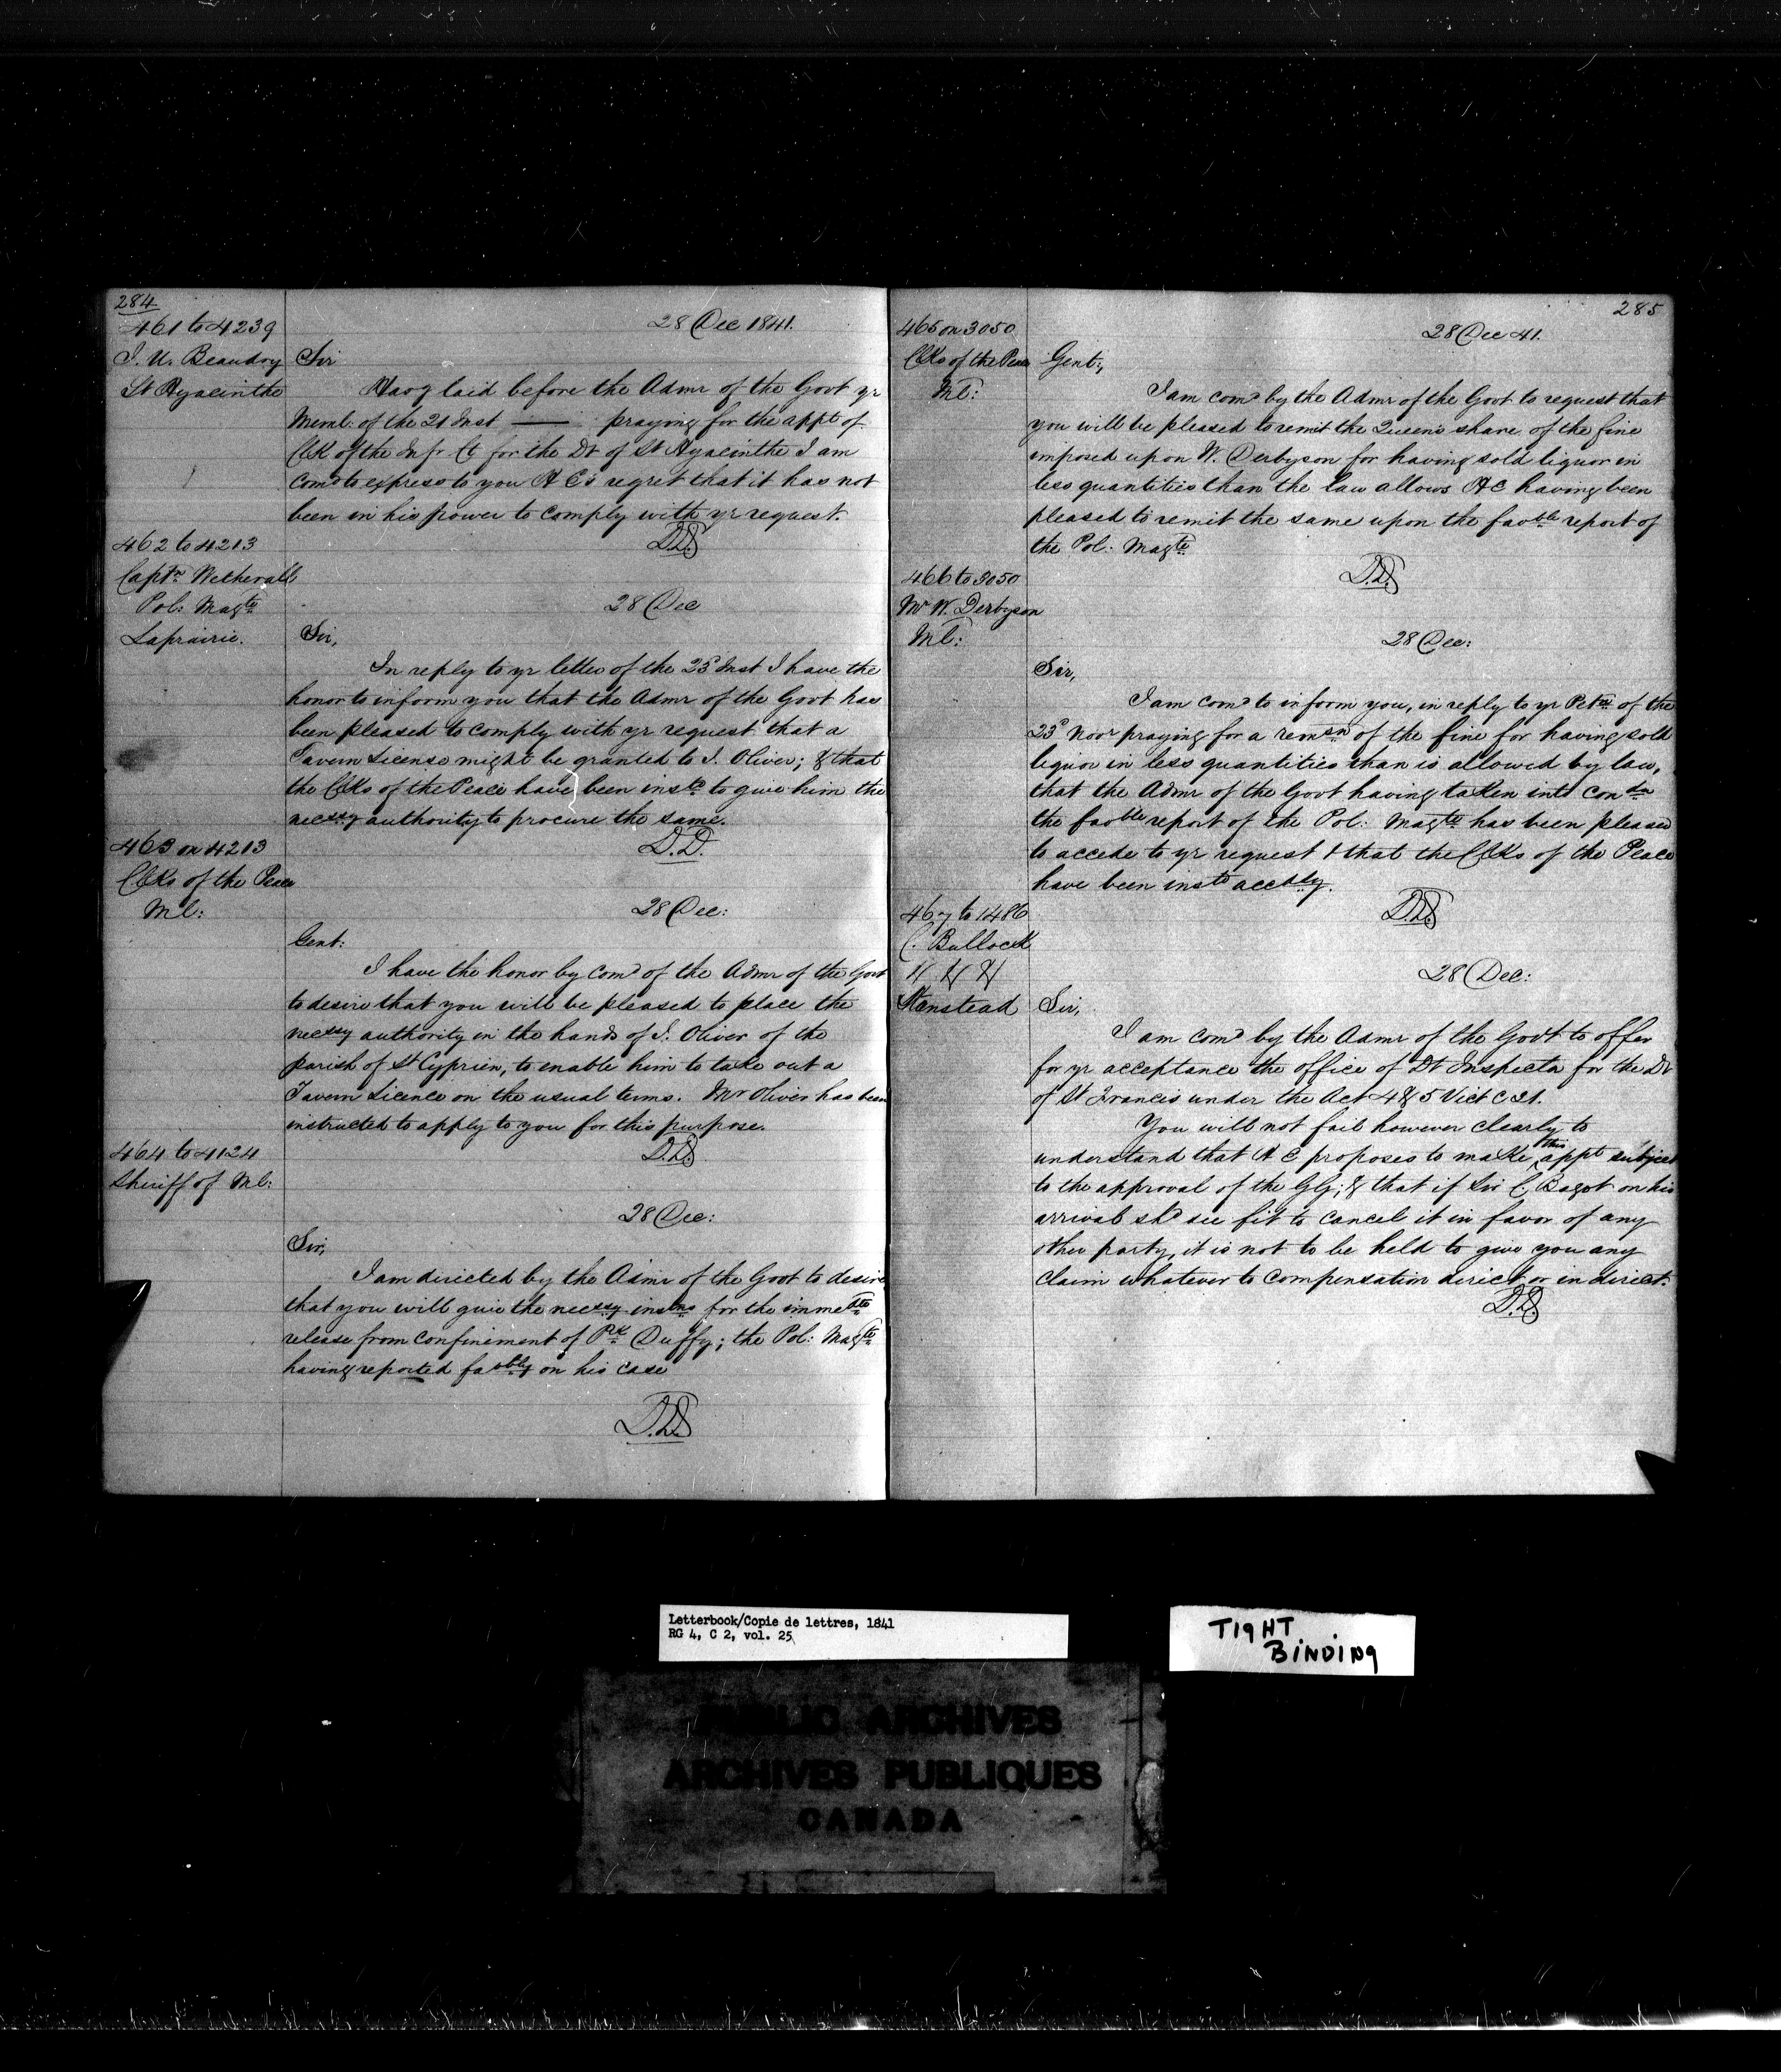 284
461 to 4239
J. U. Beaudry
St Hyacinthe
28 Dec 1841.
Sir
Havg laid before the Admr of the Govt yr
Meml: of the 21 Inst — praying for the appt of
Clk of the Infr Ct for the Dt of St Hyacinthe I am
comd to express to you H E's regret that it has not
been in his power to comply with yr request.
D.D.
462 to 4213
Captn Wetherall
Pol: Magte
Laprairie.
28 Dec
Sir,
In reply to yr letter of the 23d Inst I have the
honor to inform you that the Admr of the Govt has
been pleased to comply with yr request that a
Tavern License might be granted to J. Oliver; & that
the Clks of the Peace have been instd to give him the
necssy authority to procure the same.
D.D.
463 on 4213
Clks of the Peace
Ml:
28 Dec:
Gent:
I have the honor by comd of the Admr of the Govt
to desire that you will be pleased to place the
necssy authority in the hands of J. Oliver of the
parish of St Cyprien, to enable him to take out a
Tavern Licence on the usual terms. Mr Oliver has been
instructed to apply to you for this purpose.
D.D.
464 to 4124
Sheriff of Ml:
28 Dec:
Sir,
I am directed by the Admr of the Govt to desire
that you will give the necssy instns for the immedte
release from confinement of Pk Duffy; the Pol: Magte
having reported fabbly on his case
D.D.
285
465 on 3050
Clks of the Peace
Ml:
28 Dec 41.
Gent:,
I am comd by the Admr of the Govt to request that
you will be pleased to remit the Queen's share of the fine
imposed upon W. Derbyson for having sold liquor in
less quantities than the law allows H E having been
pleased to remit the same upon the favble report of
the Pol: Magte
D.D.
466 to 3050
Mr W. Derbyson
Ml:
28 Dec:
Sir,
I am comd to inform you, in reply to yr Petn of the
23d Novr praying for a remsn of the fine for having sold
liquor in less quantities than is allowed by law,
that the Admr of the Govt having taken into condn
the favble report of the Pol: Magte has been pleased
to accede to yr request & that the Clks of the Peace
have been instd accdly.
D.D.
467 to 1486
C. Bullock
Stanstead
28 Dec:
Sir,
I am comd by the Admr of the Govt to offer
for yr acceptance the office of Dt Inspector for the Dt
of St Francis under the Act 4 & 5 Vict C 21.
You will not fail however clearly to
understand that H E proposes to make this appt subject
to the approval of the GG; & that if Sir C. Bagot on his
arrival shd see fit to cancel it in favor of any
other party, it is not to be held to give you any
claim whatever to compensation direct or indirect.
D.D.
Letterbook/Copie de lettres, 1841
RG 4, C 2, vol. 25
TIGHT
BINDING
PUBLIC ARCHIVES
ARCHIVES PUBLIQUES
CANADA